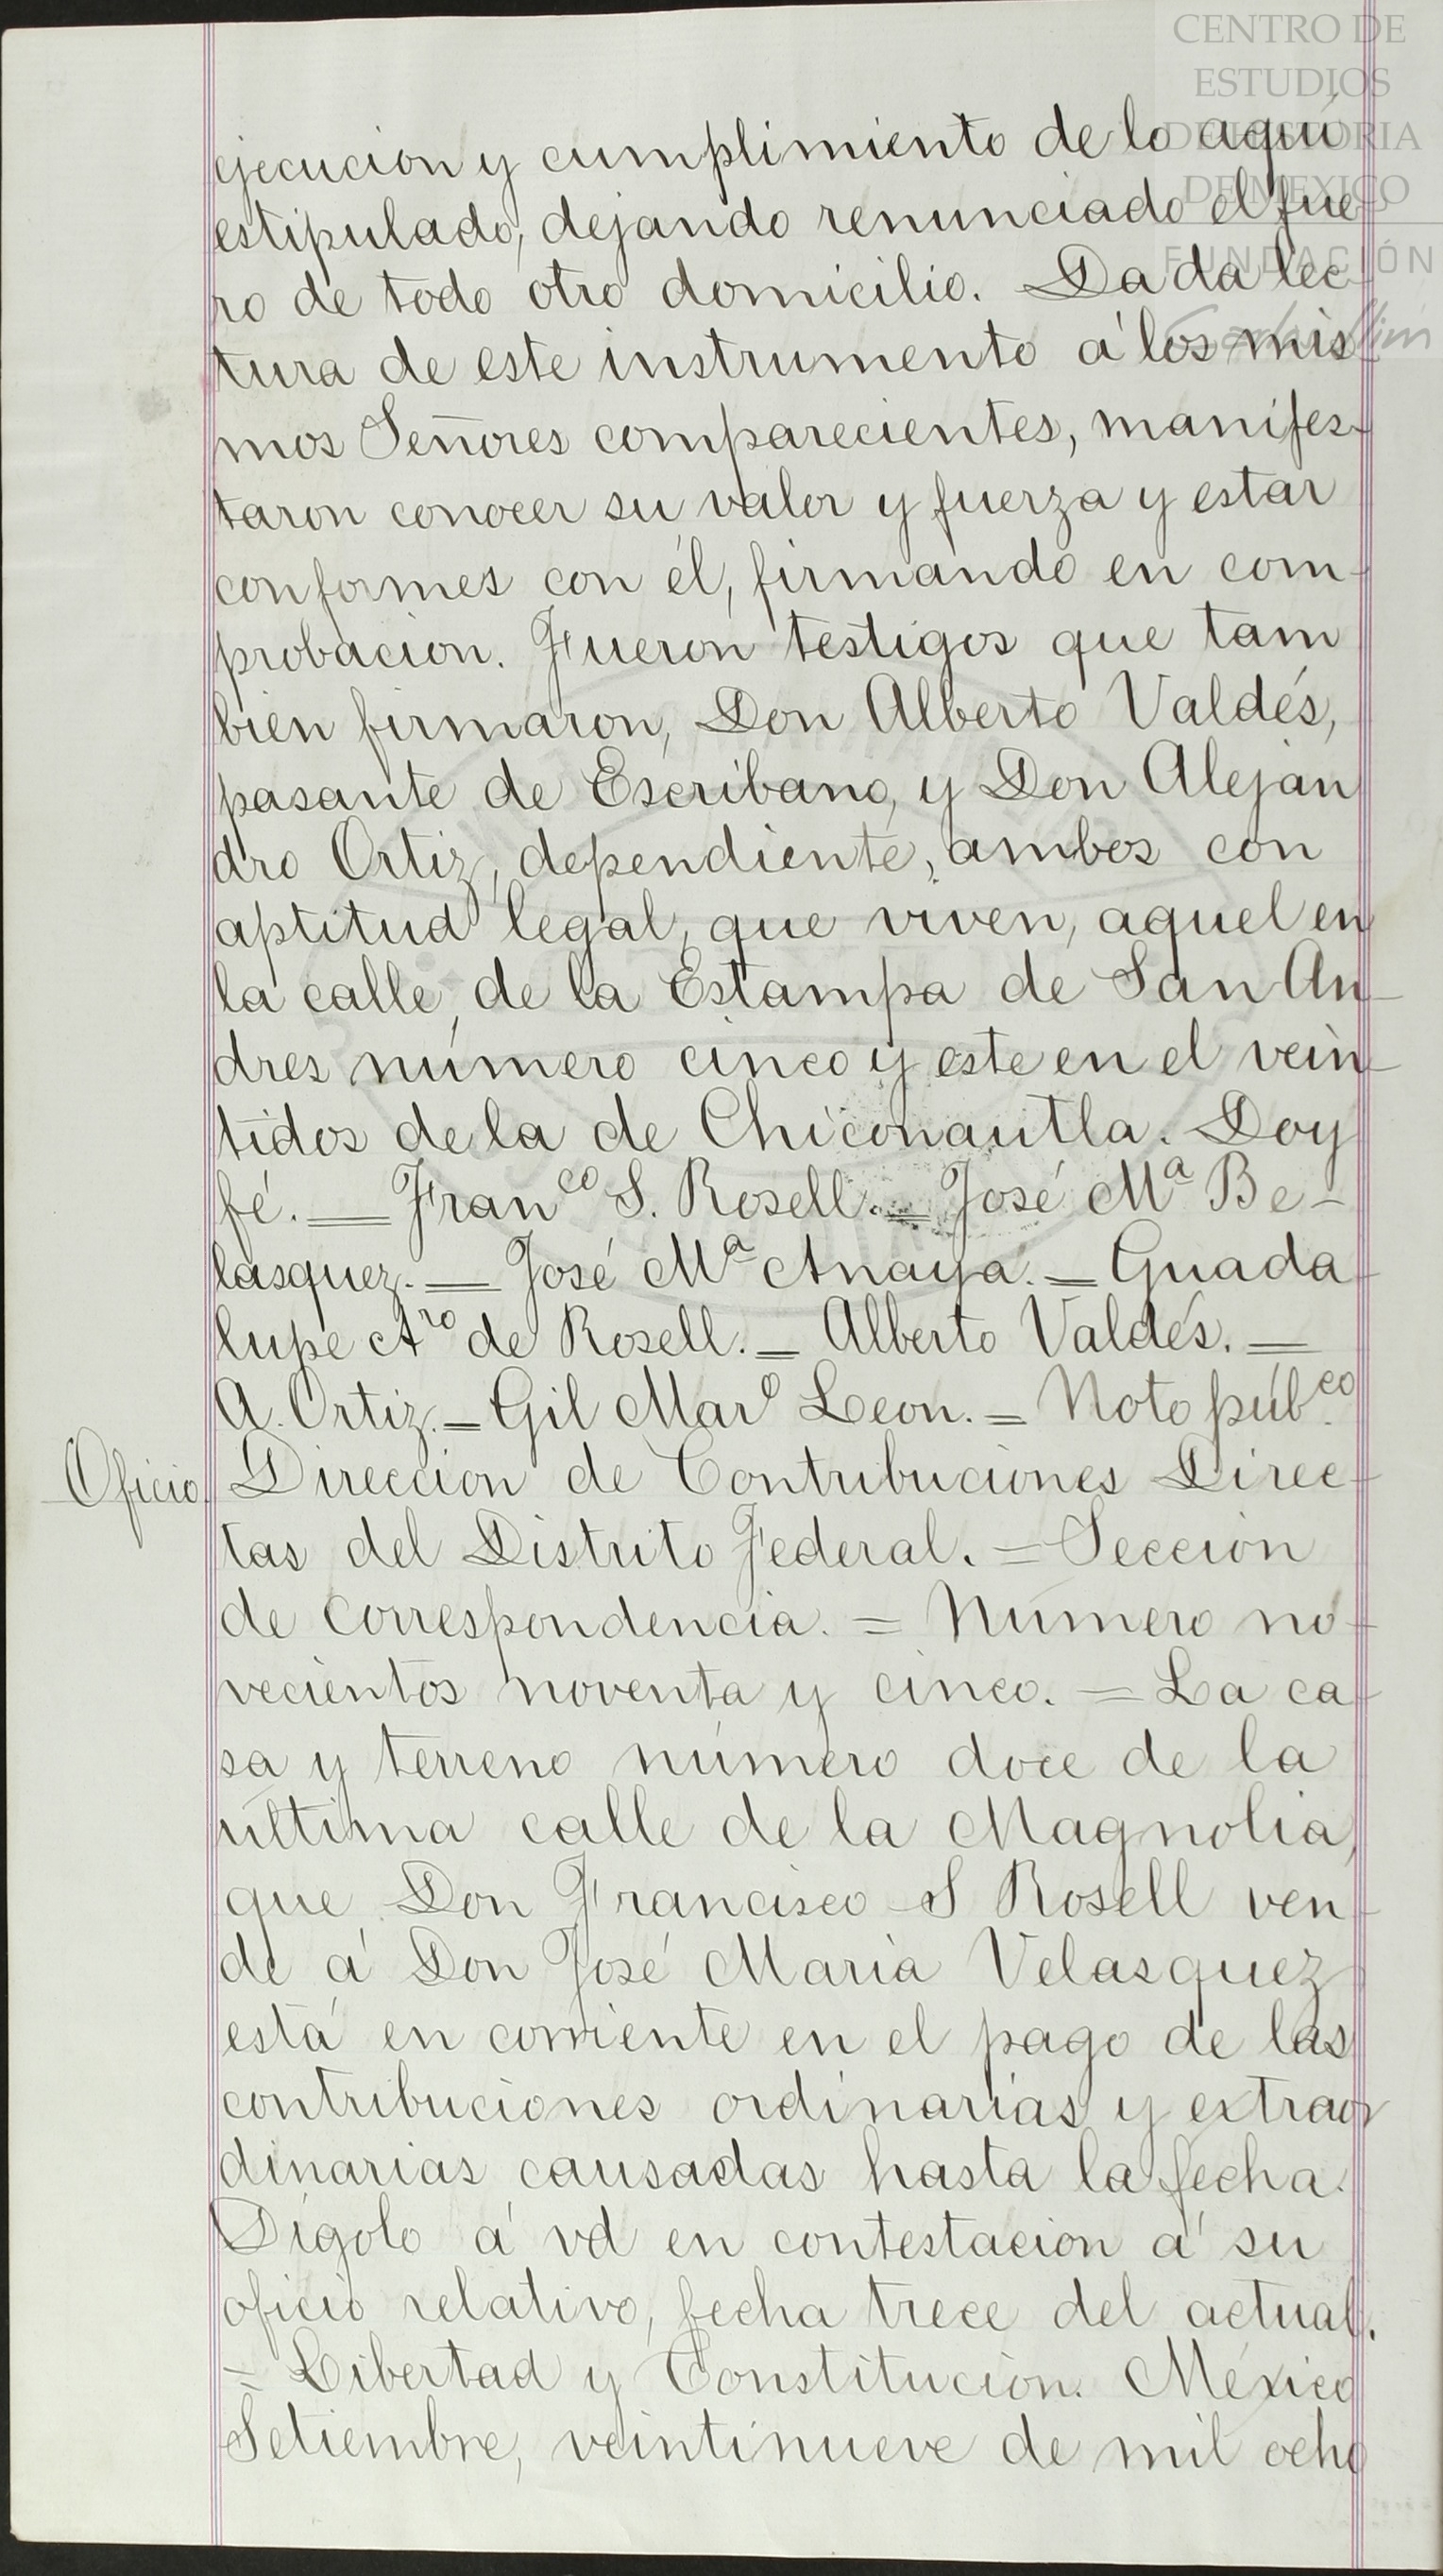 CENTRO DE
ESTUDIOS
DE HISTORIA
DE MEXICO
FUNDACIÓN
ejecucion y cumplimiento de lo aquí
estipulado, dejando renunciado el fue
ro de todo otro domicilio. Dada lec
tura de este instrumento á los mis
mos Señores comparecientes, manifes-
taron conocer su valor y fuerza y estar
conformes con él, firmando en com-
probacion. Fueron testigos que tam
bien firmaron, Don Alberto Valdés,
pasante de Escribano, y Don Alejan
dro Ortiz, dependiente, ambos con
aptitud legal, que viven, aquel en
la calle, de la Estampa de San An-
dres número cinco y este en el vein-
tidos de la de Chiconautla. Doy
fé. = Fran.co S. Rosell. = José Ma Be-
lasquez. = José Ma Anaya. = Guada-
lupe Aro de Rosell. = Alberto Valdés. =
A. Ortiz. = Gil Maro Leon. = Noto púb.co
Oficio. Direccion de Contribuciones Direc-
tas del Distrito Federal. = Seccion
de correspondencia. = Número no-
vecientos noventa y cinco. = La ca-
sa y terreno número doce de la
última calle de la Magnolia,
que Don Francisco S Rosell ven-
de á Don José María Velasquez
está en corriente en el pago de las
contribuciones ordinarias y extraor
dinarias causadas hasta la fecha.
Dígolo á vd en contestacion á su
oficio relativo, fecha trece del actual.
= Libertad y Constitucion. México
Setiembre, veintinueve de mil ocho